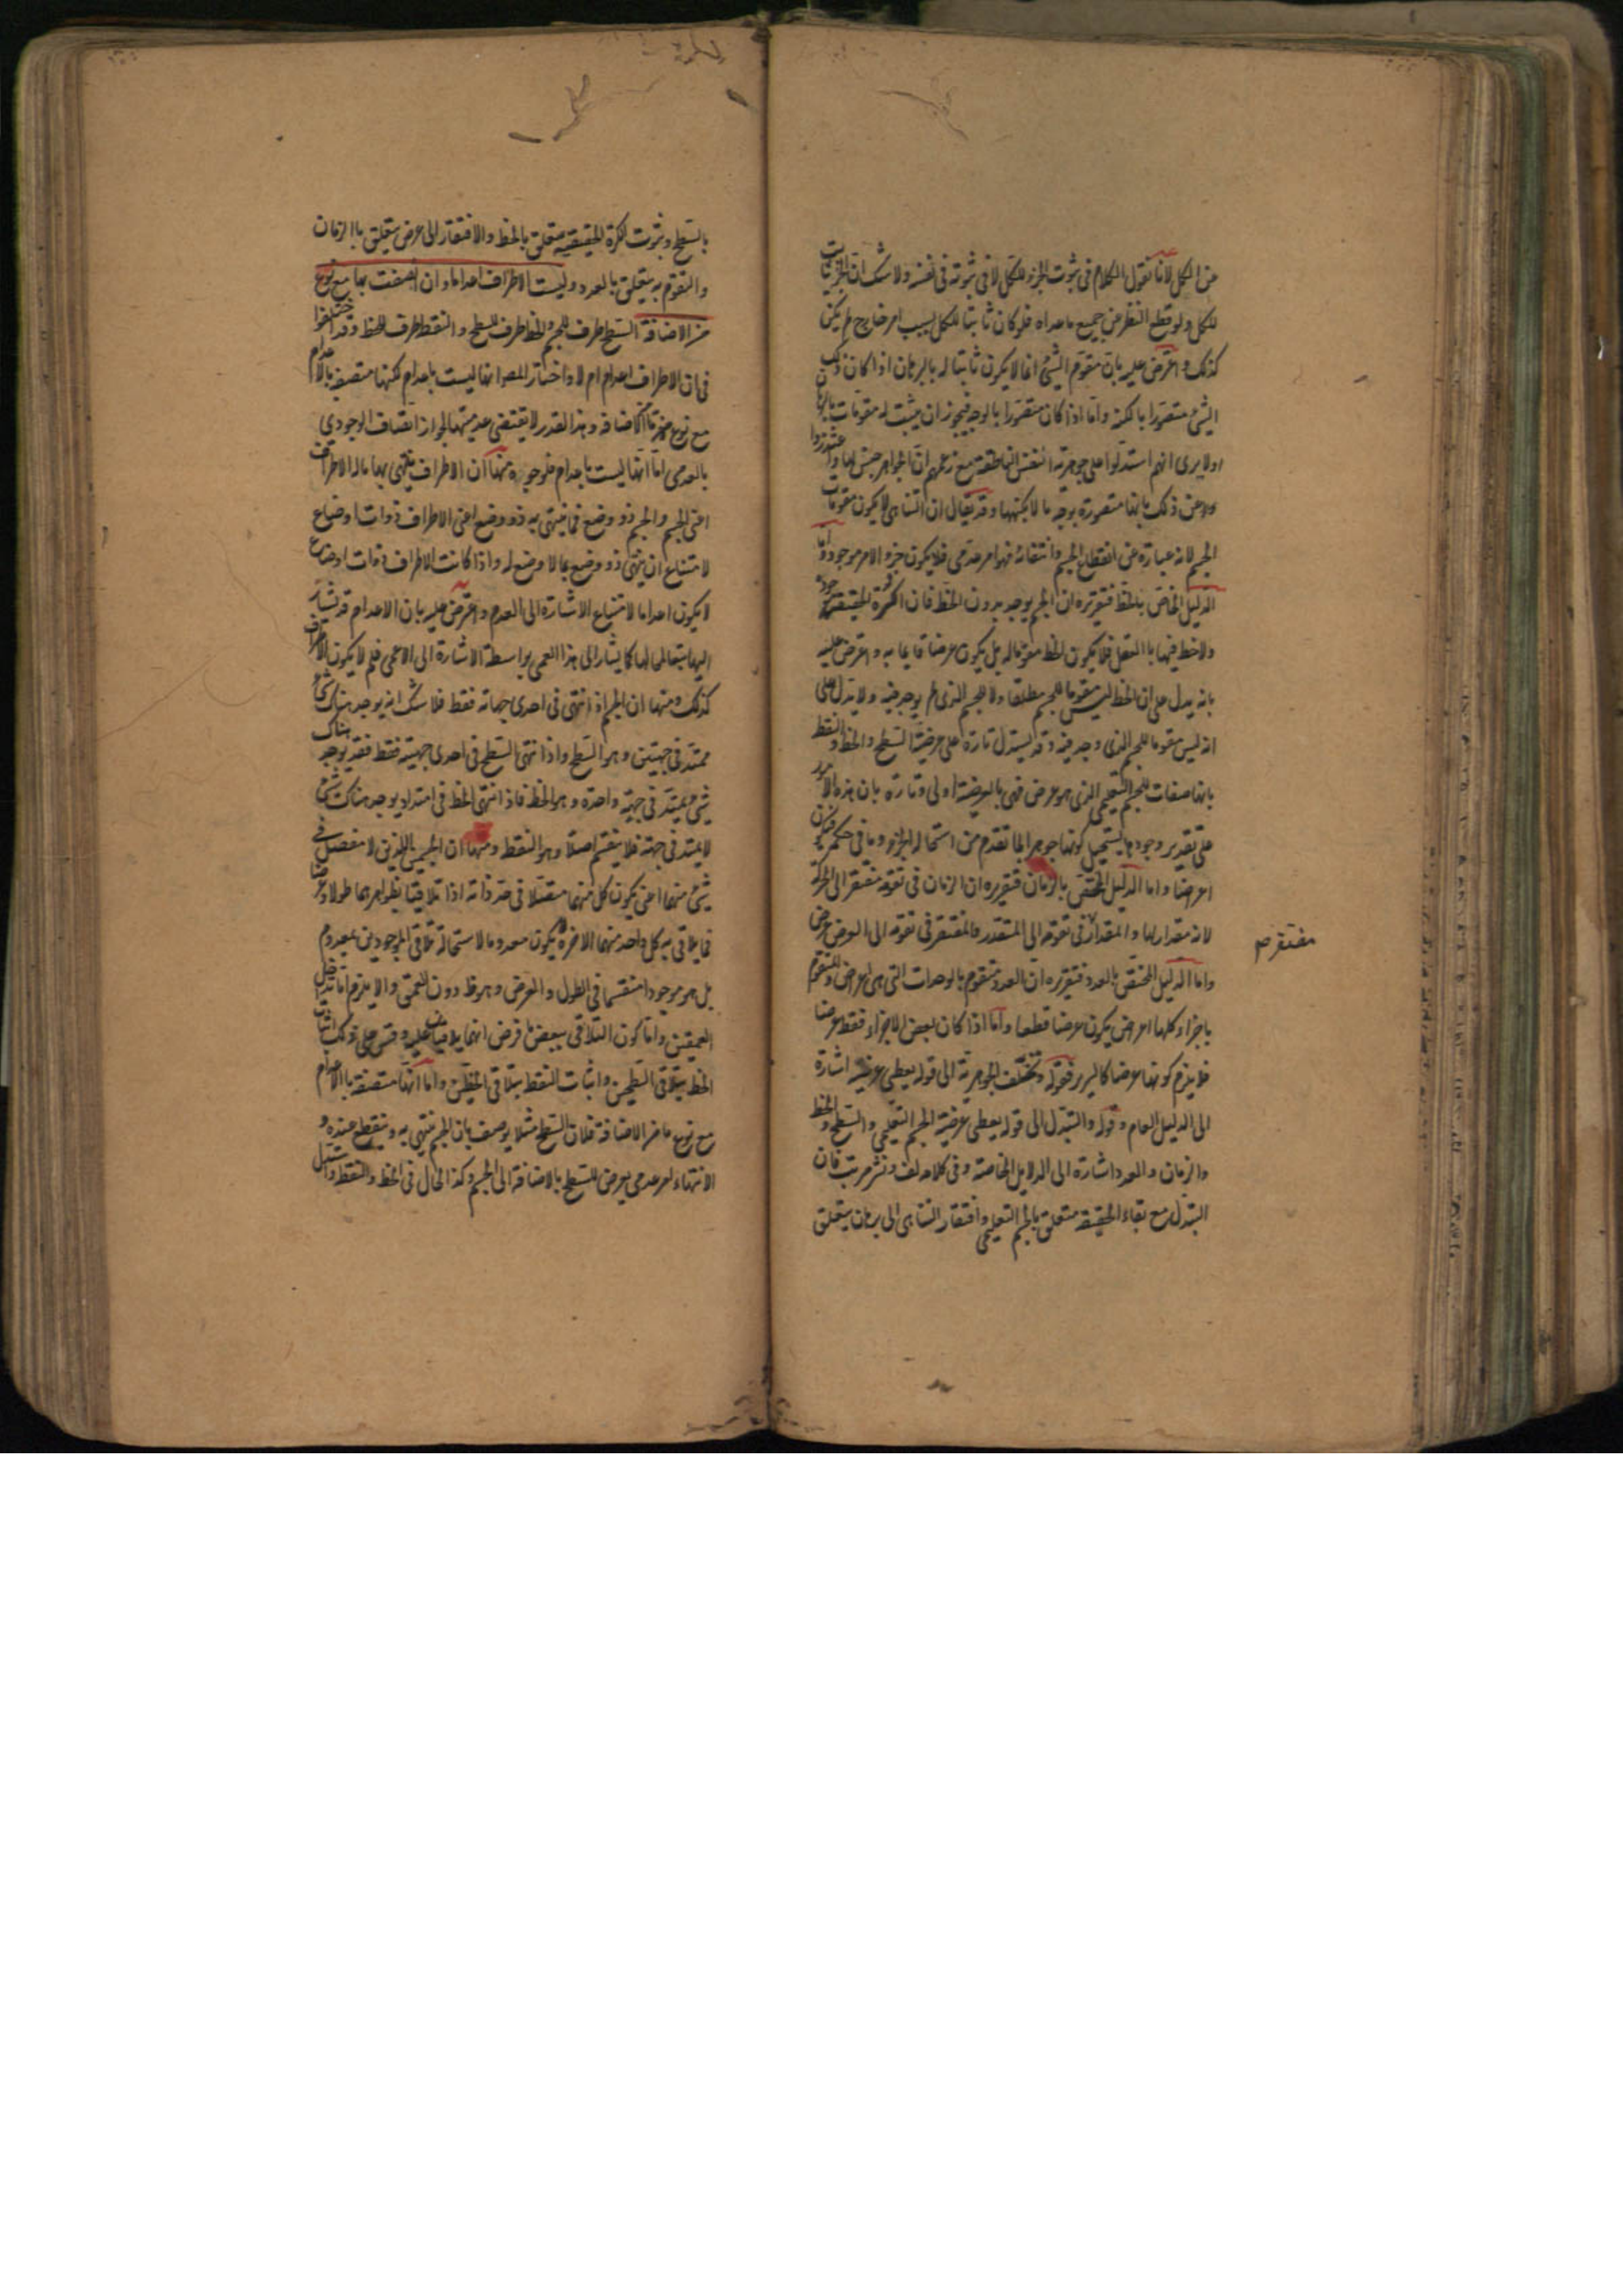 عن الكل لانا نقول الكلام فى ثبوت الجزء للكل لا فى ثبوته فى نفسه ولا شك ان الجزء ثابت
للكل ولو قطع النظر عن جميع ما عداه فلو كان ثابتا للكل بسبب امر خارج لم يكن
كذلك واعترض عليه بان مقوم الشئ انما لا يكون ثابتا له بالبرهان اذا كان ذلك
الشئ متصورا بالكنه واما اذا كان متصورا بالوجه فيجوز ان يثبت له مقومات بالبرهان
اولا يرى انهم استدلوا على جوهرية النفس الناطقة مع زعمهم ان الجواهر جنس لها واعتذروا
عن ذلك بانها متصورة بوجه ما لا بكنهها وقد يقال ان التناهى لا يكون مقومات
الجسم لانه عبارة عن انقطاع الجسم وانتفائه فهو امر عدمى فلا يكون جزء الامر موجود واما
الدليل الخاص بالخط فتقريره ان الجسم يوجد بدون الخط فان الكرة الحقيقية موجودة
ولا خط فيها بالفعل فلا يكون الخط مقوما له بل يكون عرضا قايما به واعترض عليه
بانه يدل على ان الخط ليس مقوما للجسم مطلقا ولا للجسم الذى لم يوجد فيه ولا يدل على
انه ليس مقوما للجسم الذى وجد فيه وقد يستدل تارة على عرضية السطح والخط والنقط
بانها صفات للجسم التعليمى الذى هو عرض فهى بالعرضية اولى وتارة بان هذه الامور
على تقدير وجودها يستحيل كونها جوهرا لما تقدم من استحالة الجزء وما فى حكمه فيكون
اعراضا واما الدليل المختص بالزمان فتقريره ان الزمان فى تقومه مفتقر الى الحركة
لانه مقدار لها والمقدار فى تقومه الى المتقدر والمفتقر فى تقومه الى العرض عرض
مفتقر م
واما الدليل المختص بالعدد فتقريره ان العدد متقوم بالوحدات التى هى اعراض والمتقوم
باجزاء كلها اعراض يكون عرضا قطعا واما اذا كان بعض الاجزاء فقط عرضا
فلا يلزم كونها عرضا كالسرير فقوله وتخلف الجوهرية الى قوله يعطى عرضية اشارة
الى الدليل العام وقوله والتبدل الى قوله يعطى عرضية الجسم التعليمى والسطح والخط
والزمان والعدد اشارة الى الدلايل الخاصة وفى كلامه لف ونشر مرتب فان
التبدل مع بقاء الحقيقة متعلق بالجسم التعليمى وافتقار التناهى الى برهان يتعلق
بالسطح وثبوت الكرة الحقيقية متعلق بالخط والافتقار الى عرض يتعلق بالزمان
والتقوم به يتعلق بالعدد وليست الاطراف اعداما وان اتصفت بها مع نوع
من الاضافة السطح طرف للجسم والخط طرف للسطح والنقط طرف للخط وقد اختلفوا
فى ان الاطراف اعدام ام لا واختار المص انها ليست باعدام لكنها متصفة بالاعدام
مع نوع ما من الاضافة وهذا القدر لا يقتضى عدميتها لجواز اتصاف الوجودى
بالعدمى اما انها ليست باعدام فلوجوه منها ان الاطراف ينتهى بها ماله الاطراف
اعنى الجسم والجسم ذو وضع فما ينتهى به ذو وضع اعنى الاطراف ذوات اوضاع
لامتناع ان ينتهى ذو وضع بما لا وضع له واذا كانت الاطراف ذوات اوضاع
لا يكون اعداما لامتناع الاشارة الى العدم واعترض عليه بان الاعدام قد تشار
اليها بتبع محالها كما يشار الى هذا العمى بواسطة الاشارة الى الاعمى فلم لا يكون الاطراف
كذلك ومنها ان الجسم اذا انتهى فى احدى جهاته فقط فلا شك انه يوجد هناك شئ
ممتد فى جهتين وهو السطح واذا انتهى السطح فى احدى جهتيه فقط فقد يوجد هناك
شئ يمتد فى جهة واحدة وهو الخط فاذا انتهى الخط فى امتداد يوجد هناك شئ
لا يمتد فى جهة فلا ينقسم اصلا وهو النقط ومنها ان الجسمين اللذين لا مفصل فى
شئ منهما اعنى يكون كل منهما متصلا فى حد ذاته اذا تلاقيا بظواهرهما طولا وعرضا
فما يلاقى به كل واحد منهما الاخر لا يكون معدوما لاستحالة تلاقى الموجودين بمعدوم
بل هو موجودا منقسما فى الطول والعرض وهو ظ دون العمق والا يلزم اما تداخل
العميقين واما كون التلاقى ببعض ما فرض انهما يلاقيان عليه وقس على ذلك اثبات
الخط بتلاقى السطحين واثبات النقط بتلاقى الخطين واما انها متصفة بالاعدام
مع نوع ما من الاضافة فلان السطح مثلا يوصف بان الجسم ينتهى به وينقطع عنده و
الانتهاء امر عدمى يعرض للسطح بالاضافة الى الجسم وكذا الحال فى الخط والنقط